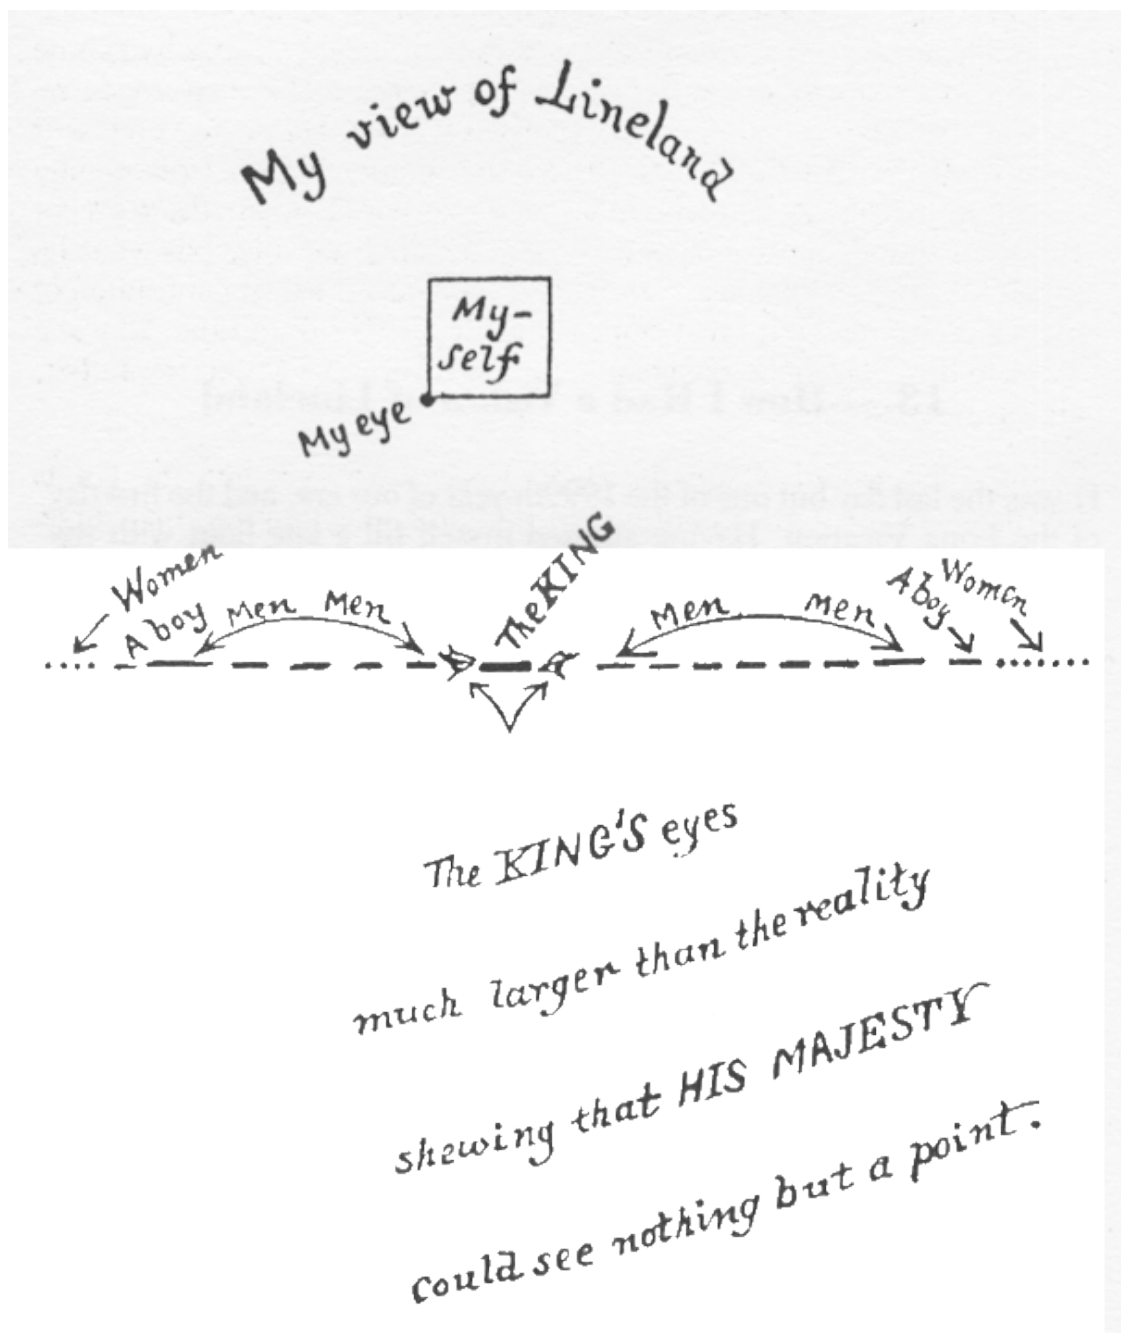 My view of Lineland
My-
self
My eye
Women
A boy Men Men
The KING
Men Men
A boy
Women
The KING'S eyes
much larger than the reality
shewing that HIS MAJESTY
could see nothing but a point.